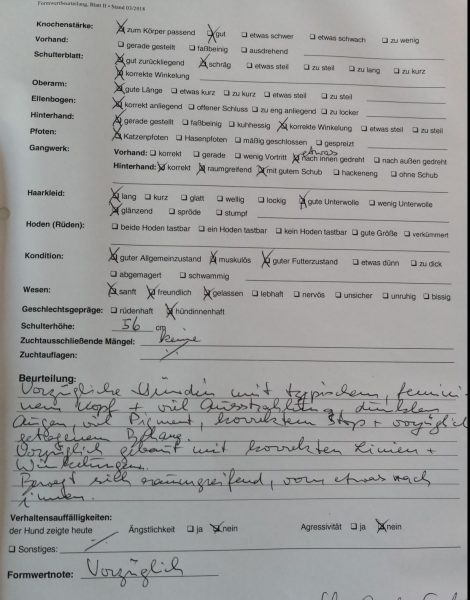 Formwertbeurteilung, Blatt II • Stand 03/2018
Knochenstärke: ☒ zum Körper passend ☒ gut ☐ etwas schwer ☐ etwas schwach ☐ zu wenig
Vorhand: ☐ gerade gestellt ☐ faßbeinig ☐ ausdrehend
Schulterblatt: ☒ gut zurückliegend ☒ schräg ☐ etwas steil ☐ zu steil ☐ zu lang ☐ zu kurz
☒ korrekte Winkelung
Oberarm: ☒ gute Länge ☐ etwas kurz ☐ zu kurz ☐ etwas steil ☐ zu steil
Ellenbogen: ☒ korrekt anliegend ☐ offener Schluss ☐ zu eng anliegend ☐ zu locker
Hinterhand: ☒ gerade gestellt ☐ faßbeinig ☐ kuhhessig ☒ korrekte Winkelung ☐ etwas steil ☐ zu steil
Pfoten: ☒ Katzenpfoten ☐ Hasenpfoten ☐ mäßig geschlossen ☐ gespreizt
etwas
Gangwerk: Vorhand: ☐ korrekt ☐ gerade ☐ wenig Vortritt ☒ nach innen gedreht ☐ nach außen gedreht
Hinterhand: ☒ korrekt ☒ raumgreifend ☒ mit gutem Schub ☐ hackeneng ☐ ohne Schub
Haarkleid: ☒ lang ☐ kurz ☐ glatt ☐ wellig ☐ lockig ☒ gute Unterwolle ☐ wenig Unterwolle
☒ glänzend ☐ spröde ☐ stumpf
Hoden (Rüden): ☐ beide Hoden tastbar ☐ ein Hoden tastbar ☐ kein Hoden tastbar ☐ gute Größe ☐ verkümmert
Kondition: ☒ guter Allgemeinzustand ☒ muskulös ☒ guter Futterzustand ☐ etwas dünn ☐ zu dick
☐ abgemagert ☐ schwammig
Wesen: ☒ sanft ☒ freundlich ☒ gelassen ☐ lebhaft ☐ nervös ☐ unsicher ☐ unruhig ☐ bissig
Geschlechtsgepräge: ☐ rüdenhaft ☒ hündinnenhaft
Schulterhöhe: 56 cm
Zuchtausschließende Mängel: keine
Zuchtauflagen:
Beurteilung:
Vorzügliche Hündin mit typischem, femini-
nem Kopf + viel Ausstrahlung, dunklen
Augen, viel Pigment, korrektem Stop + vorzüglich
getragenem Behang.
Vorzüglich gebaut mit korrekten Linien +
Winkelungen.
Bewegt sich raumgreifend, vorn etwas nach
innen.
Verhaltensauffälligkeiten:
der Hund zeigte heute Ängstlichkeit ☐ ja ☒ nein Agressivität ☐ ja ☒ nein
☐ Sonstiges:
Formwertnote: Vorzüglich